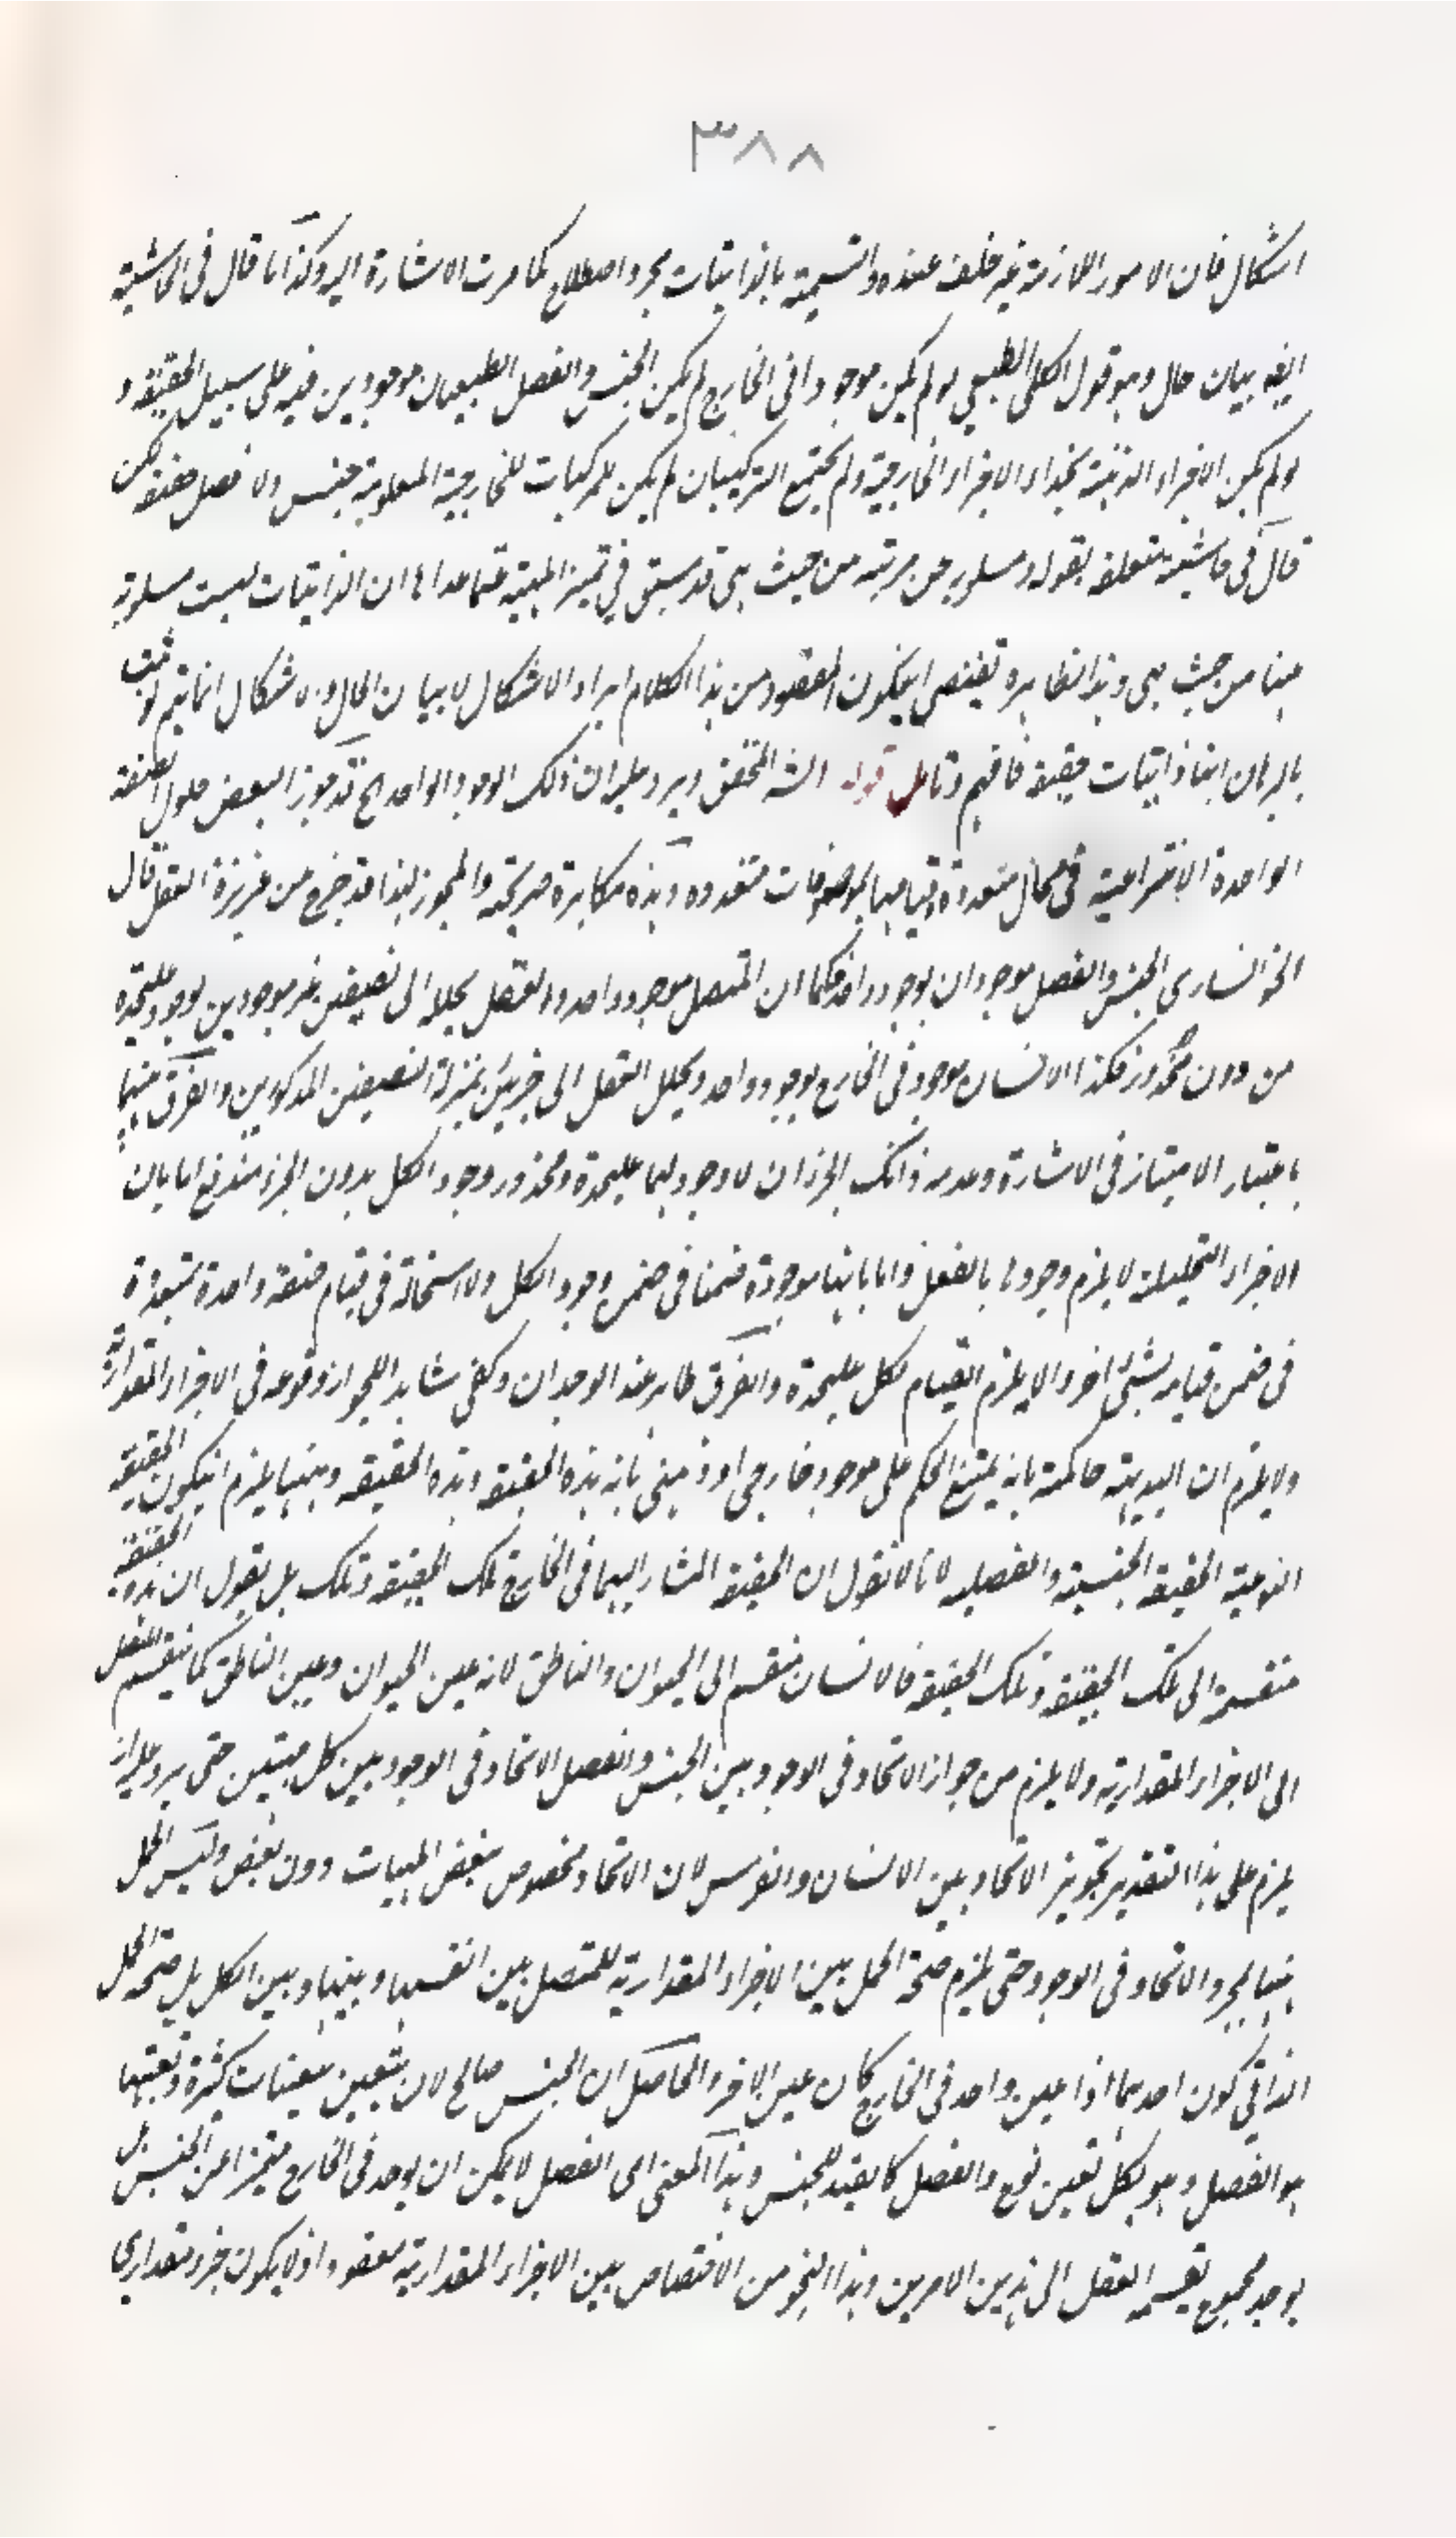 ٣٨٨
اشكال فان الامور اللازمة غير خلف عنده والتسمية بالذاتيات مجرد اصطلاح كما مرت الاشارة اليه وكذا ما قال في الحاشية
ايضا بيان حال وهو قول الكلى الطبيعي لو لم يكن موجودا في الخارج لم يكن الجنس والفصل الطبيعيان موجودين فيه على سبيل الحقيقة و
لو لم يكن الاجزاء الذهنية بحذاء الاجزاء الخارجية ولم يجتمع التركيبان لم يكن للمركبات الخارجية المعلومة جنس ولا فصل حقيقة لكن
قال في حاشية متعلقة بقوله ومسلوب عن مرتبة من حيث هي قد سبق في تميز المهية عما عداها ان الذاتيات ليست مسلوبة
عنها من حيث هي وهذا بظاهره تقتضى ايكون المقصود من هذا الكلام ايراد الاشكال لا بيان الحال والاشكال انما يتم لو ثبت
بالبرهان انها ذاتيات حقيقة فافهم وتامل قوله الشه المحقق ويرد عليه ان ذلك الوجود الواحد الخ قد جوز البعض حلول الصفة
الواحدة الانتزاعية في محال متعددة وقيامها بالموصوفات متعدده وهذه مكابرة صريحة والمجوز لهذا قد خرج من غريزة العقل قال
الخوانسارى الجنس والفصل موجودان بوجود واحد فكما ان المتصل موجود واحد والعقل يحلله الى نصفين غير موجودين بوجود عليحدة
من دون محذور فكذا الانسان موجود في الخارج بوجود واحد ويحلل العقل الى جزئين بمنزلة النصفين المذكورين والفرق بينهما
باعتبار الامتياز في الاشارة وعدمه فانك الجزان لا وجود لهما عليحدة ومحذور وجود الكل بدون الجزء مندفع اما بان
الاجزاء التحليلية لا يلزم وجودها بالفعل واما بانها موجودة ضمنا في ضمن وجود الكل ولا استحالة في قيام صفة واحدة بمتعددة
في ضمن قيامه بشئ اخر والا يلزم القيام لكل عليحدة والفرق ظاهر عند الوجدان وكفى شاهد الجواز وقوعه في الاجزاء المقدارية
ولا يلزم ان البديهة حاكمة بانه يمتنع الحكم على موجود خارجي او ذهني بانه هذه الحقيقة وهذه الحقيقه وههنا يلزم ايكون الحقيقة
النوعية الحقيقه الجنسية والفصليه لانا لا نقول ان الحقيقة المشار اليها في الخارج تلك الحقيقه وتلك بل يقول ان هذه الحقيقة
منقسمة الى تلك الحقيقة وتلك الحقيقة فالانسان منقسم الى الحيوان والناطق لانه عين الحيوان وعين الناطق كما ينقسم المتصل
الى الاجزاء المقدارية ولا يلزم من جواز الاتحاد في الوجود بين الجنس والفصل الاتحاد في الوجود بين كل مهيتين حتى يرد عليه انه
يلزم على هذا التقدير تجويز الاتحاد بين الانسان والفرس لان الاتحاد مخصوص ببعض المهيات دون بعض وليس الحمل
بينها لمجرد الاتحاد في الوجود حتى يلزم صحة الحمل بين الاجزاء المقدارية للمتصل بين انفسها وبينها وبين الكل بل صحة الحمل
الذاتي كون احدهما اذا عين واحد في الخارج كان عين الاخر والحاصل ان الجنس صالح لان يتعين بتعينات كثيرة وتعينها
هو الفصل وهو بكل تعين نوع والفصل كالقيد للجنس وبهذا المعنى اى الفصل لا يمكن ان يوجد في الخارج متميزا عن الجنس بل
يوجد مجموع يقسمه العقل الى هذين الامرين وهذا النحو من الاختصاص بين الاجزاء المقدارية مفقود اذ لا يكون جزء مقدارى